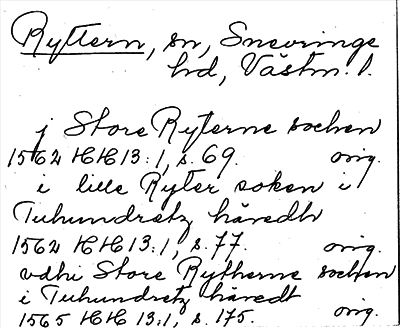 Ryttern, sn, Snevringe
hd, Västm. l.
j Store Ryterne sochen
1562 HH 13:1, s. 69. orig.
i lille Ryter soken i
Tuhundretz häredh
1562 HH 13:1, s. 77. orig.
vdhi Store Rytherne sochen
i Tuhundretz häredt
1565 HH 13:1, s. 175. orig.